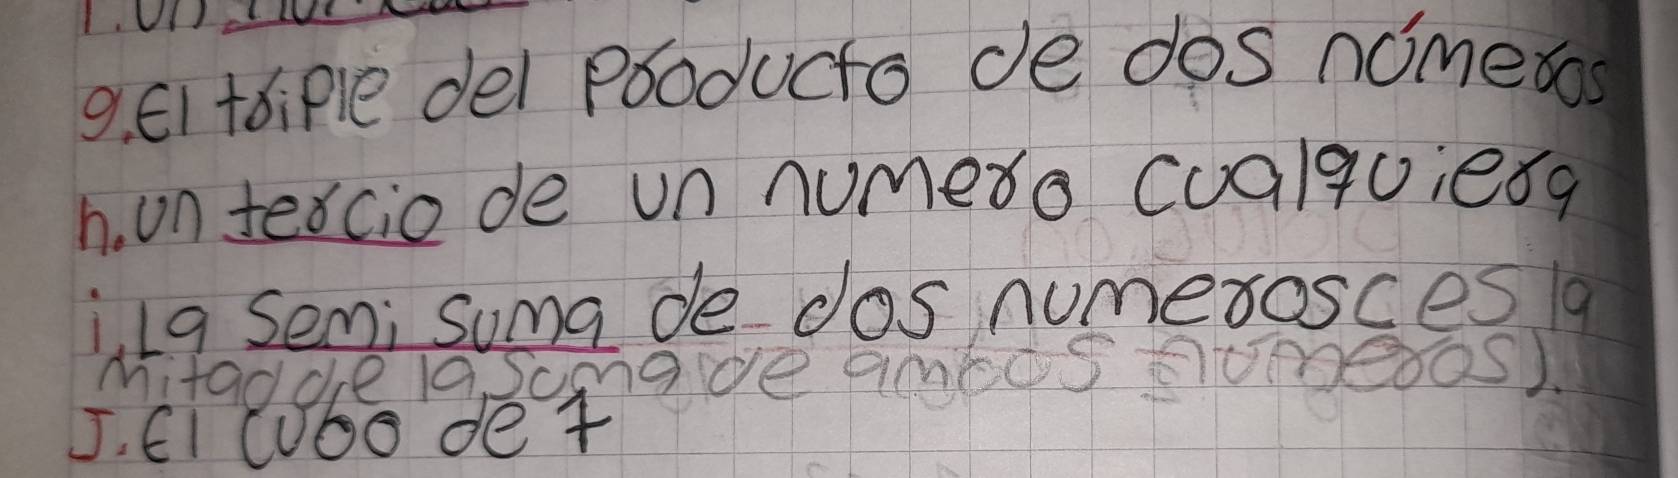 g. El triple del producto de dos números
h. un tercio de un numero cualquiera
i. La semi suma de dos numeros (es la
mitad de la suma de ambos numeros).
J. El cubo de